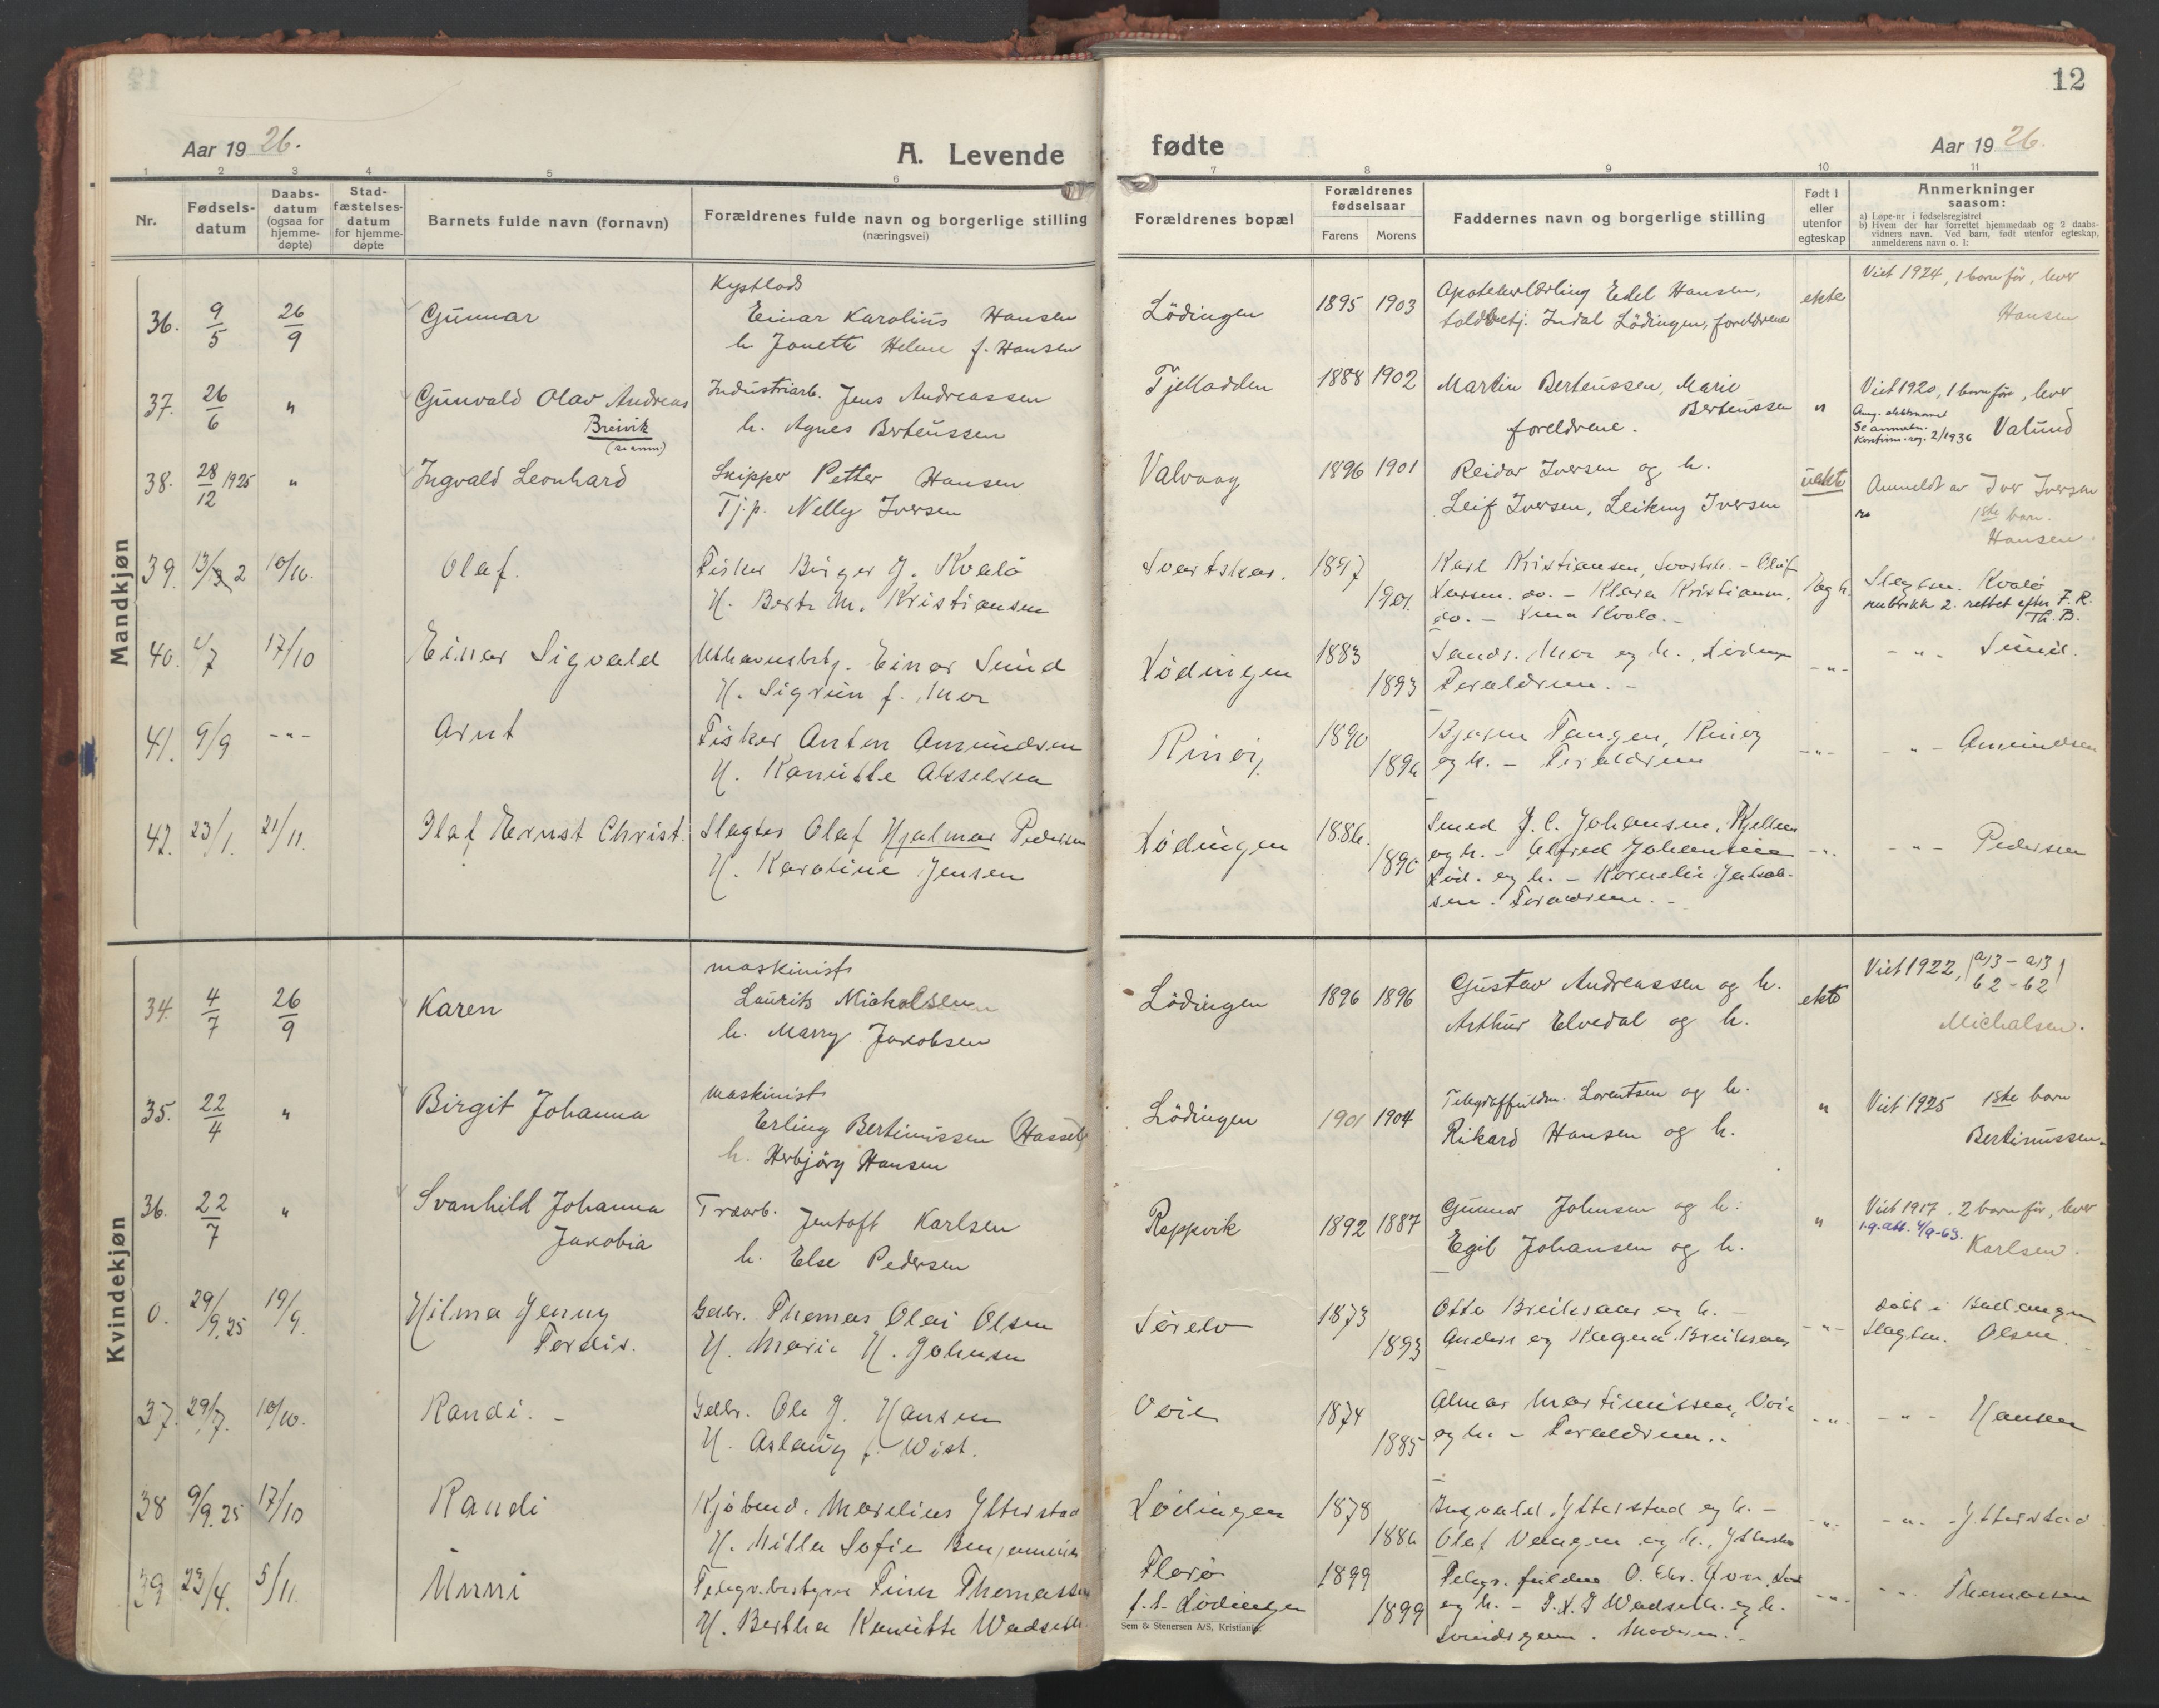 12
Aar 1926.
A. Levende
fødte
Aar 1926.
1 2 3 4 5 6 7 8 9 10 11
Nr.
Fødsels-
datum
Daabs-
datum
(ogsaa for
hjemme-
døpte)
Stad-
fæstelses-
datum
for hjemme-
døpte
Barnets fulde navn (fornavn)
Forældrenes fulde navn og borgerlige stilling
(næringsvei)
Forældrenes bopæl
Forældrenes
fødselsaar
Farens Morens
Faddernes navn og borgerlige stilling
Født i
eller
utenfor
egteskap
Anmerkninger
saasom:
a) Løpe-nr i fødselsregistret
b) Hvem der har forrettet hjemmedaab og 2 daabs-
vidners navn. Ved barn, født utenfor egteskap,
anmelderens navn o. l:
Mandkjøn
36. 9/5 26/9 Gunnar
Kystlods
Einar Karolius Hansen
h. Janette Helene f. Hansen
Lödingen 1895 1903
Apotekerlærling Edel Hansen,
toldbetj. Indal Lödingen, foreldrene
ekte
Viet 1924, 1 barn før, lever
Hansen
37. 26/6 " Gunvald Olav Andreas
Breivik
(se anm)
Industriarb. Jens Andreassen
h. Agnes Berteussen
Tjelladden 1888 1902
Martin Berteussen, Marie
Berteussen
foreldrene.
"
Viet 1920, 1 barn før, lever
Se anmerkn.
Konfirm. reg. 2/1936 Valund
38. 28/12 1925 " Ingvald Leonhard
Skipper Petter Hansen
Tj.p. Nelly Iversen
Valvaag 1896 1901
Reidar Iversen og h.
Leif Iversen, Leikny Iversen
uekte
Anmeldt av Iver Iversen
1ste barn.
Hansen.
39. 13/3 2 10/10. Olaf.
Fisker Birger J. Kvalö
H. Berte M. Kristiansen
Svartskar. 1897 1901.
Karl Kristiansen, Svartsk. - Oluf
Larsen. do. - Klara Kristiansen,
do. - Lina Kvalö. -
Slegtsn. Kvalö
rubrikk 2. rettet efter F. R.
Th. B.
40. 4/7 17/10 Einar Sigvald
Einar Sund
H. Sigrun f. Mor
Lödingen 1883 1893
Sands. Mor og h., Lödingen
Forældrene. -
-"-
-"- Sund.
41. 9/9 -"- Arnt
Fisker Anton Amundsen
H. Kanutte Akselsen
Rinöy 1890 1896
Bjarne Tangen, Rinöy
og h. - Forældrene
-"-
-"- Amundsen
42. 23/1. 21/11. Olaf Ernst Christ.
Slagter Olaf Hjalmar Pedersen
H. Karoline Jensen
Lödingen 1886. 1890
Smed J. C. Johansen, Kjellen
og h. - Alfred Johansen
Löd. og h. - Kornelie Jakob-
sen. Forældrene. -
-"-
-"- Pedersen
Kvindekjøn
34. 4/7 26/9 Karen
maskinist
Laurits Mickalsen
h. Marry Jakobsen
Lödingen 1896 1896
Gustav Andreassen og h.
Arthur Elvedal og h.
ekte
Viet 1922, (a)3 - a)3)
b 2 - b2
Michalsen.
35. 22/4 " Birgit Johanna
maskinist
Erling Bertinussen (Hassel)
h. Herbjörg Hansen
Lödingen 1901 1904
Telegraffuldm. Lorentsen og h.
Rikard Hansen og h.
"
Viet 1925 1ste barn
Bertinussen.
36. 22/7 " Svanhild Johanna
Jakobia
Træarb. Jentoft Karlsen
h. Else Pedersen
Reppvik 1892 1887
Gunnar Johnsen og h.
Egil Johansen og h.
"
Viet 1917. 2 barn før, lever
1.g. att. 4/9-63. Karlsen.
0. 29/9.25 19/9. Hilma Jenny
Tordis.
Gdbr. Thomas Olai Olsen
H. Marie H. Johnsen
Sörelv 1873 1893
Otto Breiksaas og h. -
Anders og Magna Breiksaas
-"-
döbt i Ballangen
Slegtsn. Olsen.
37. 29/7. 10/10. Randi. -
Gdbr. Ole J. Hansen
H. Aslaug f. Wist.
Voie 1874 1885
Almar Martinussen, Voie
og h. - Forældrene..
-"-
-"- Hansen
38 9/9.25 17/10 Randi
Kjöbmd. Marelius Ytterstad
H. Milla Sofie Benjaminsen
Lödingen 1878 1886
Ingvald Ytterstad og h. -
Olaf Vangen og h., Ytterstad
-"-
-"- Ytterstad
39 23/4. 5/11. Unni
Telegr.bestyrer Finn Thomassen
H. Berthea Kanutte Wadseth.
Florö
f.t. Lödingen
1899 1899
Telegr. fuldm. O. Chr.
og h. - J. K. J Wadseth. og h.
Moderen. -
-"-
-"- Thomassen
Sem & Stenersen A/S, Kristiania.